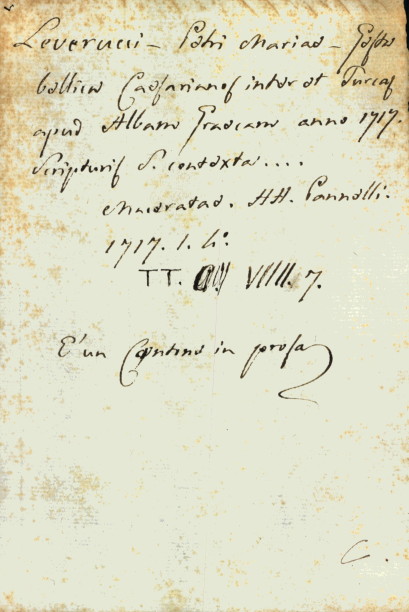 Leverucci - Petri Mariae - Gesta
bellica Caesarianos inter et Turcas
apud Albam Graecam anno 1717.
Scripturis S. contexta....
Maceratae. HH. Pannelli.
1717. 1. li:
TT. VIIII. 7.
E' un Centone in prosa
C.